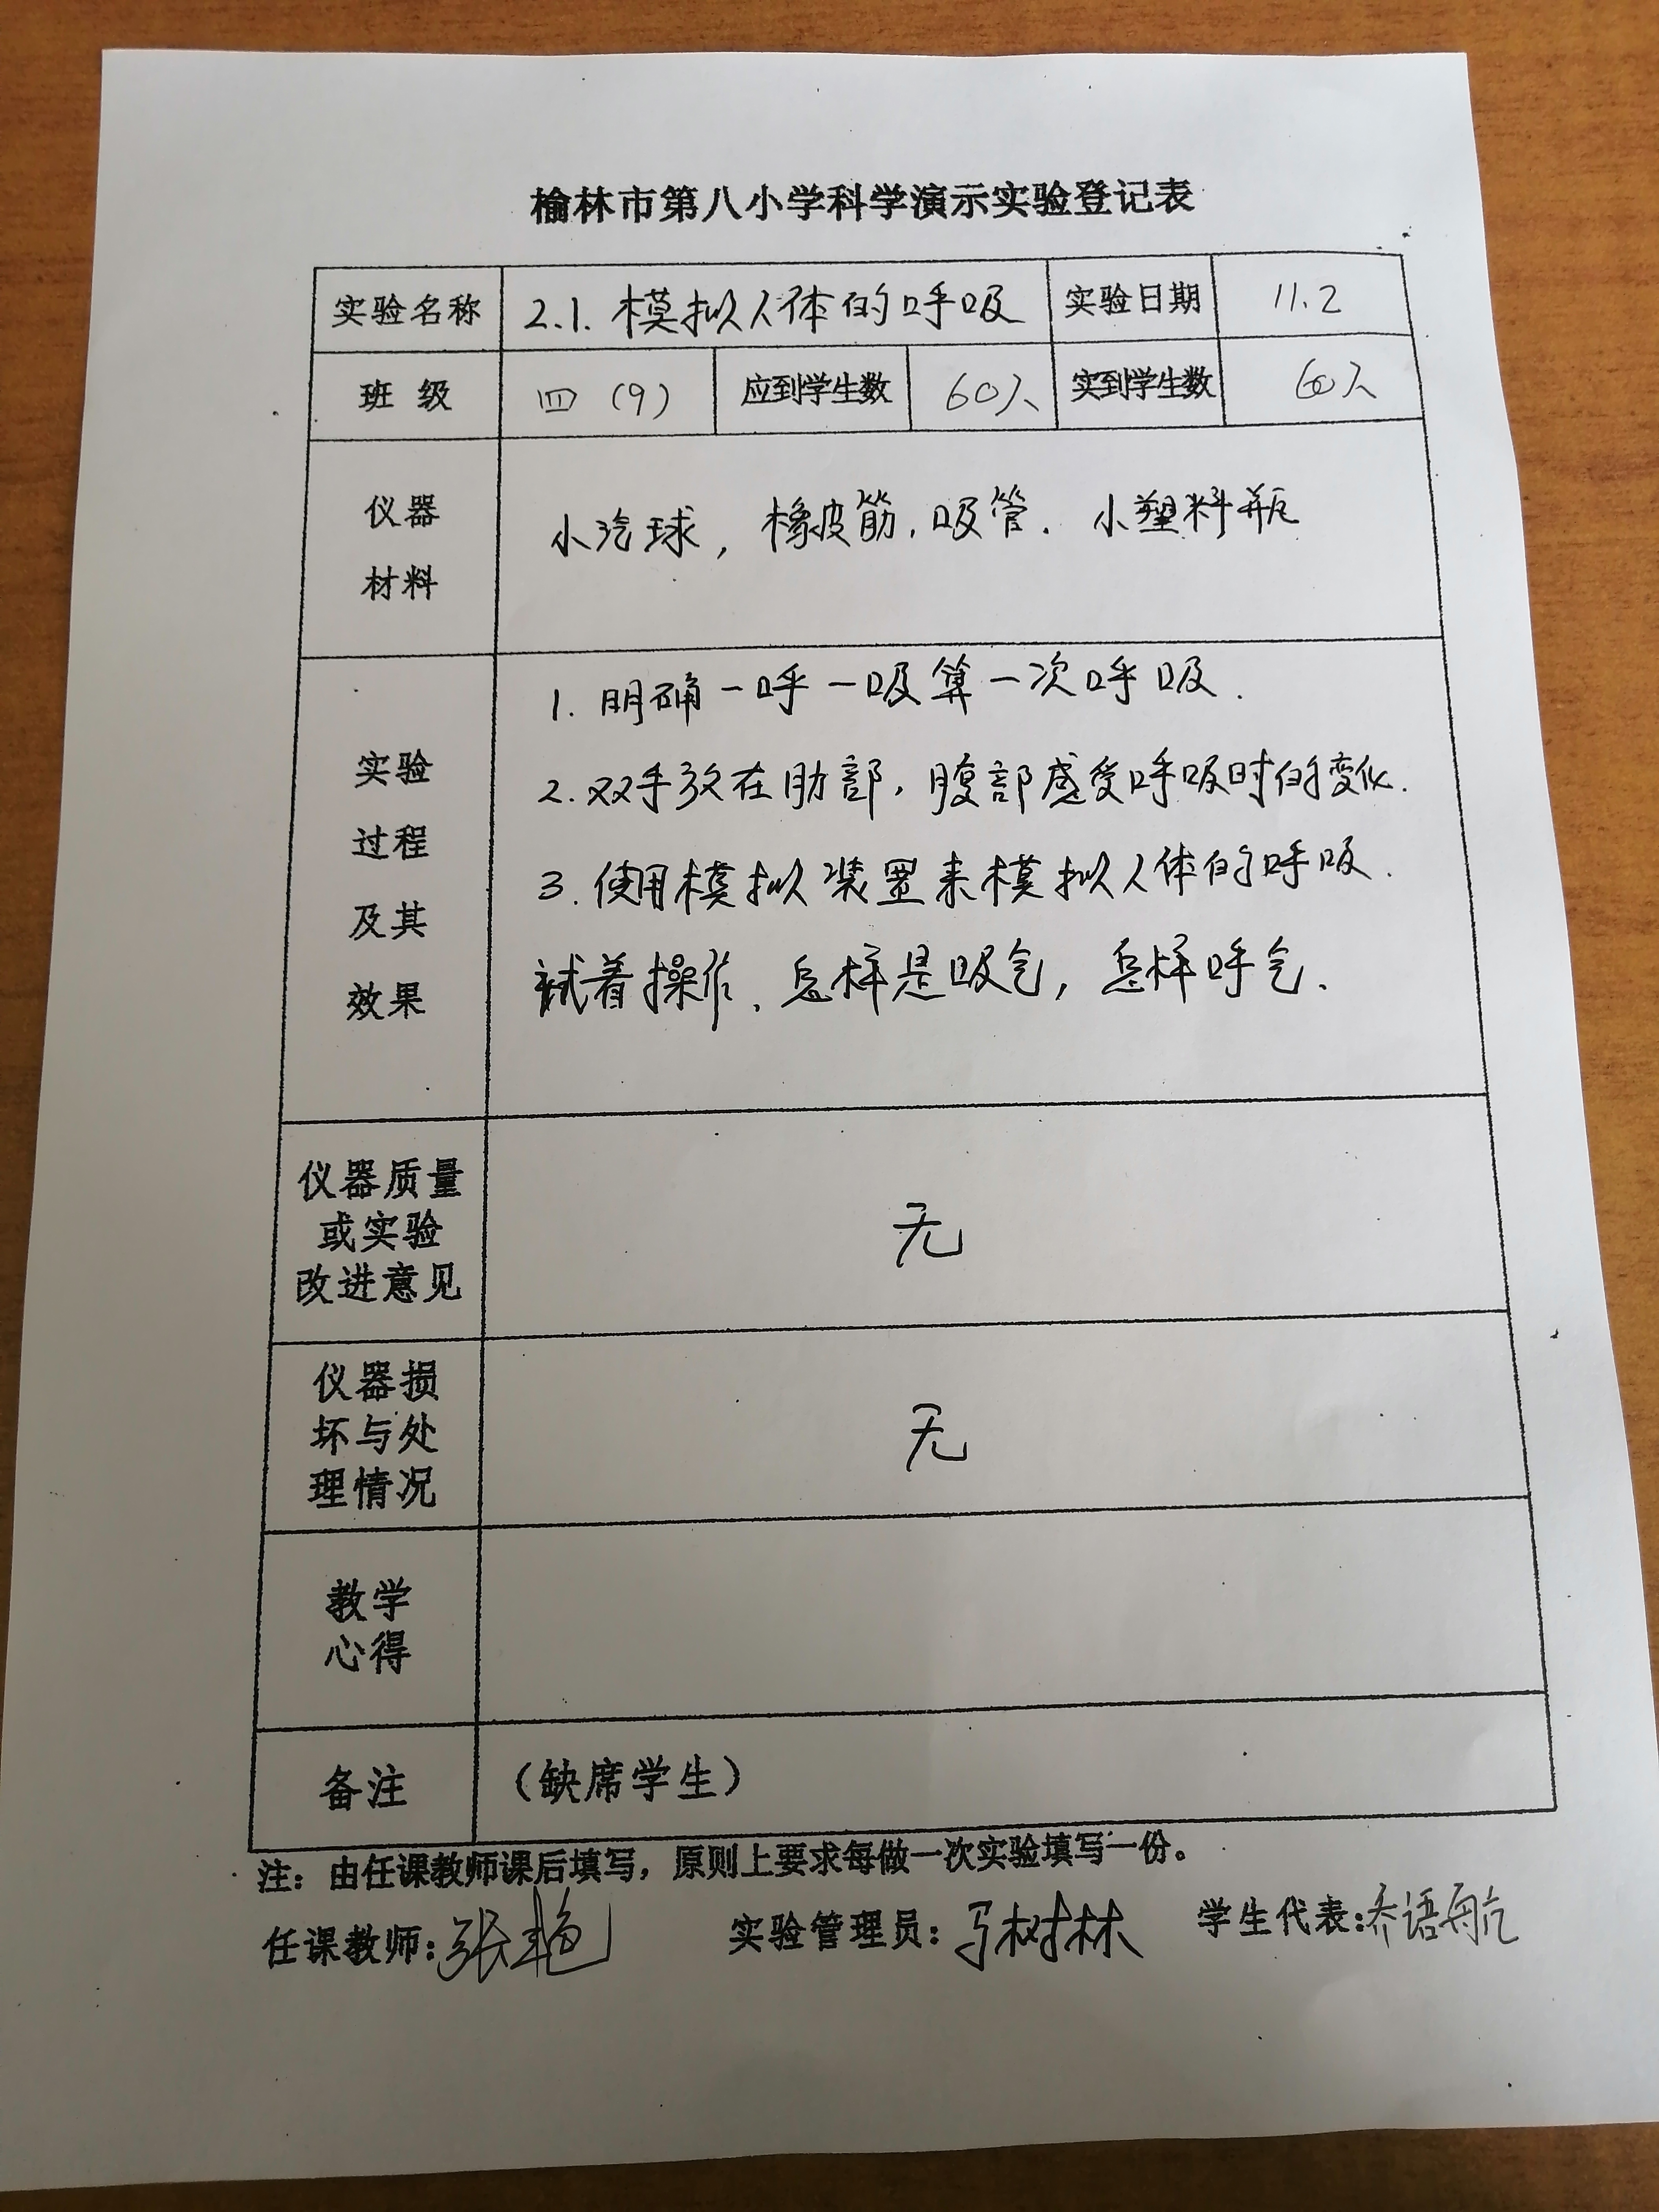 榆林市第八小学科学演示实验登记表
实验名称 2.1. 模拟人体的呼吸 实验日期 11.2
班 级 四（9） 应到学生数 60人 实到学生数 60人
仪器
材料
小汽球，橡皮筋，吸管．小塑料瓶
实验
过程
及其
效果
1. 明确一呼一吸算一次呼吸．
2. 双手放在肋部，腹部感受呼吸时的变化．
3. 使用模拟装置来模拟人体的呼吸．
试着操作、怎样是吸气，怎样呼气．
仪器质量
或实验
改进意见
无
仪器损
坏与处
理情况
无
教学
心得
备注 （缺席学生）
注：由任课教师课后填写，原则上要求每做一次实验填写一份。
任课教师：张艳 实验管理员：马树林 学生代表：乔语航